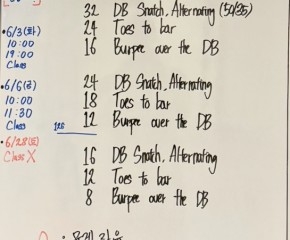 •6/3(화)
10:00
19:00
Class
•6/6(금)
10:00
11:30
Class
•6/28(토)
Class X
32 DB Snatch, Alternating (50/35)
24 Toes to bar
16 Burpee over the DB
24 DB Snatch, Alternating
18 Toes to bar
12 Burpee over the DB
16 DB Snatch, Alternating
12 Toes to bar
8 Burpee over the DB